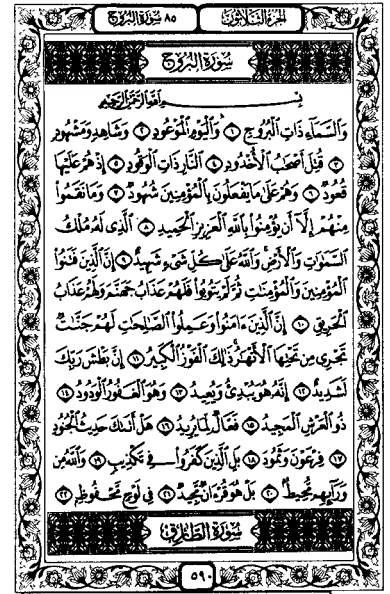 الجزء الثلاثون
٨٥ سورة البروج
سُورَةُ البُرُوجِ
بِسْمِ اللَّهِ الرَّحْمَٰنِ الرَّحِيمِ
وَالسَّمَآءِ ذَاتِ الْبُرُوجِ ١ وَالْيَوْمِ الْمَوْعُودِ ٢ وَشَاهِدٍ وَمَشْهُودٍ
٣ قُتِلَ أَصْحَٰبُ الْأُخْدُودِ ٤ النَّارِ ذَاتِ الْوَقُودِ ٥ إِذْ هُمْ عَلَيْهَا
قُعُودٌ ٦ وَهُمْ عَلَىٰ مَا يَفْعَلُونَ بِالْمُؤْمِنِينَ شُهُودٌ ٧ وَمَا نَقَمُوا
مِنْهُمْ إِلَّا أَن يُؤْمِنُوا بِاللَّهِ الْعَزِيزِ الْحَمِيدِ ٨ الَّذِى لَهُ مُلْكُ
السَّمَٰوَٰتِ وَالْأَرْضِ وَاللَّهُ عَلَىٰ كُلِّ شَىْءٍ شَهِيدٌ ٩ إِنَّ الَّذِينَ فَتَنُوا
الْمُؤْمِنِينَ وَالْمُؤْمِنَٰتِ ثُمَّ لَمْ يَتُوبُوا فَلَهُمْ عَذَابُ جَهَنَّمَ وَلَهُمْ عَذَابُ
الْحَرِيقِ ١٠ إِنَّ الَّذِينَ ءَامَنُوا وَعَمِلُوا الصَّٰلِحَٰتِ لَهُمْ جَنَّٰتٌ
تَجْرِى مِن تَحْتِهَا الْأَنْهَٰرُ ذَٰلِكَ الْفَوْزُ الْكَبِيرُ ١١ إِنَّ بَطْشَ رَبِّكَ
لَشَدِيدٌ ١٢ إِنَّهُ هُوَ يُبْدِئُ وَيُعِيدُ ١٣ وَهُوَ الْغَفُورُ الْوَدُودُ ١٤
ذُو الْعَرْشِ الْمَجِيدُ ١٥ فَعَّالٌ لِّمَا يُرِيدُ ١٦ هَلْ أَتَىٰكَ حَدِيثُ الْجُنُودِ
١٧ فِرْعَوْنَ وَثَمُودَ ١٨ بَلِ الَّذِينَ كَفَرُوا فِى تَكْذِيبٍ ١٩ وَاللَّهُ مِن
وَرَآئِهِم مُّحِيطٌ ٢٠ بَلْ هُوَ قُرْءَانٌ مَّجِيدٌ ٢١ فِى لَوْحٍ مَّحْفُوظٍ ٢٢
سُورَةُ الطَّارِقِ
٥٩٠